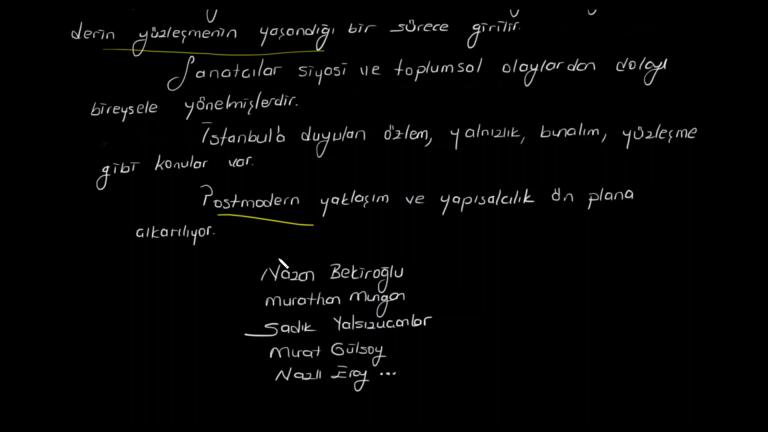 derin yüzleşmenin yaşandığı bir sürece girilir.
Sanatcılar siyasi ve toplumsal olaylardan dolayı
bireysele yönelmişlerdir.
İstanbul'a duyulan özlem, yalnızlık, bunalım, yüzleşme
gibi konular var.
Postmodern yaklaşım ve yapısalcılık ön plana
çıkarılıyor.
Nazan Bekiroğlu
Murathan Mungan
Sadık Yalsızucanlar
Murat Gülsoy
Nazlı Eray ...